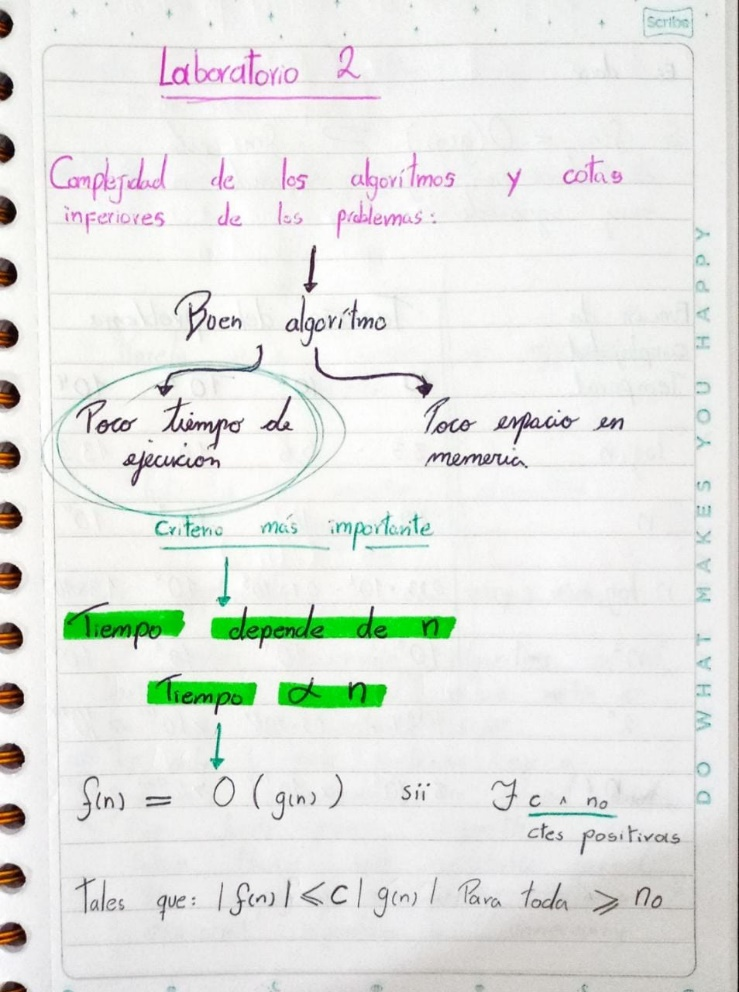 Scribe
Laboratorio 2
Complejidad de los algorítmos y cotas
inferiores de los problemas:
Buen algorítmo
Poco tiempo de
ejecución
Poco espacio en
memoria.
Criterio más importante
Tiempo depende de n
Tiempo ∝ n
f(n) = O (g(n)) sii ∃ c ∧ no
ctes positivas
Tales que: |f(n)| ≤ C | g(n) | Para toda ≥ no
DO WHAT MAKES YOU HAPPY